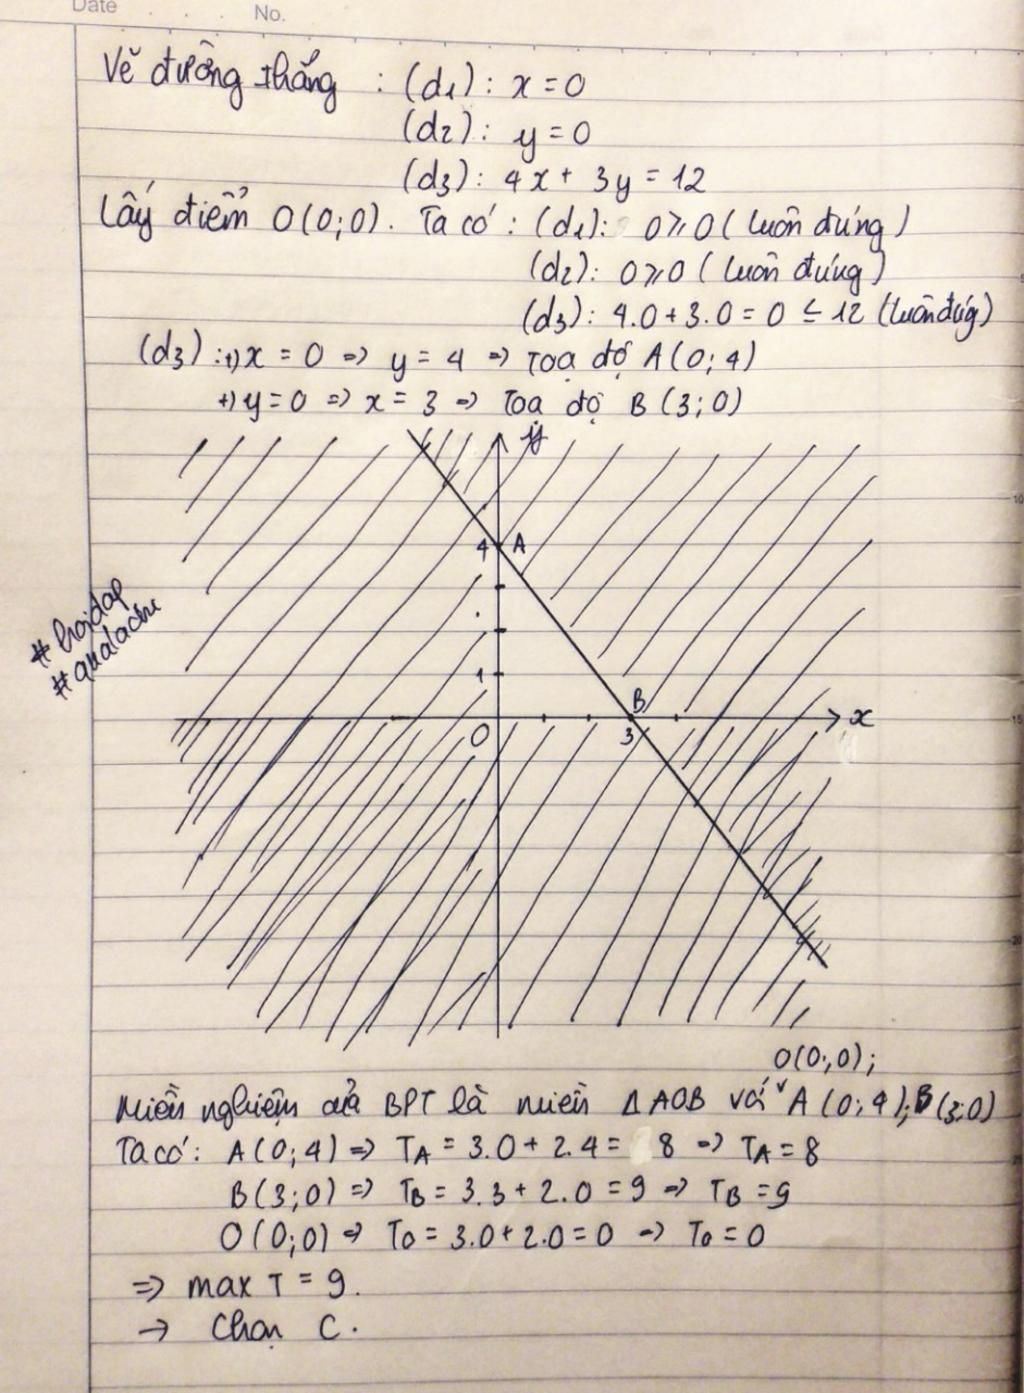 Date No.
Vẽ đường thẳng : (d1) : x = 0
(d2) : y = 0
(d3) : 4x + 3y = 12
Lấy điểm O(0;0). Ta có : (d1): 0 ⩾ 0 ( luôn đúng )
(d2): 0 ⩾ 0 ( luôn đúng )
(d3): 4.0 + 3.0 = 0 ≤ 12 (luôn đúng)
(d3) : +) x = 0 => y = 4 => Toạ độ A(0;4)
+) y = 0 => x = 3 => Toạ độ B (3;0)
y
4 A
# hoidap
# qualacau
1
B
x
O
3
O(0;0);
Miền nghiệm của BPT là miền ΔAOB với A (0;4); B(3;0)
Ta có: A(0;4) => TA = 3.0 + 2.4 = 8 => TA = 8
B(3;0) => TB = 3.3 + 2.0 = 9 => TB = 9
O(0;0) => TO = 3.0 + 2.0 = 0 => TO = 0
=> max T = 9.
→ Chọn C.